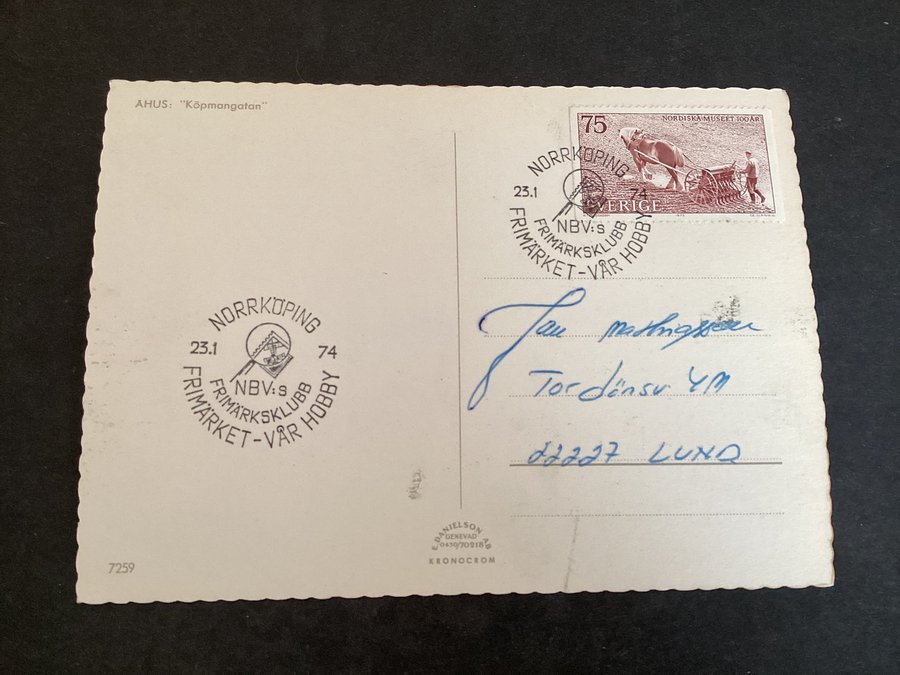 ÅHUS: "Köpmangatan"
75 NORDISKA MUSEET 100 ÅR
SVERIGE
NORRKÖPING
23.1 74
NBV:s
FRIMÄRKSKLUBB
FRIMÄRKET-VÅR HOBBY
Jan
Tordönsv 4M
22227 LUND
NORRKÖPING
23.1 74
NBV:s
FRIMÄRKSKLUBB
FRIMÄRKET-VÅR HOBBY
E. DANIELSON AB
GENEVAD
0430/70218
KRONOCROM
7259